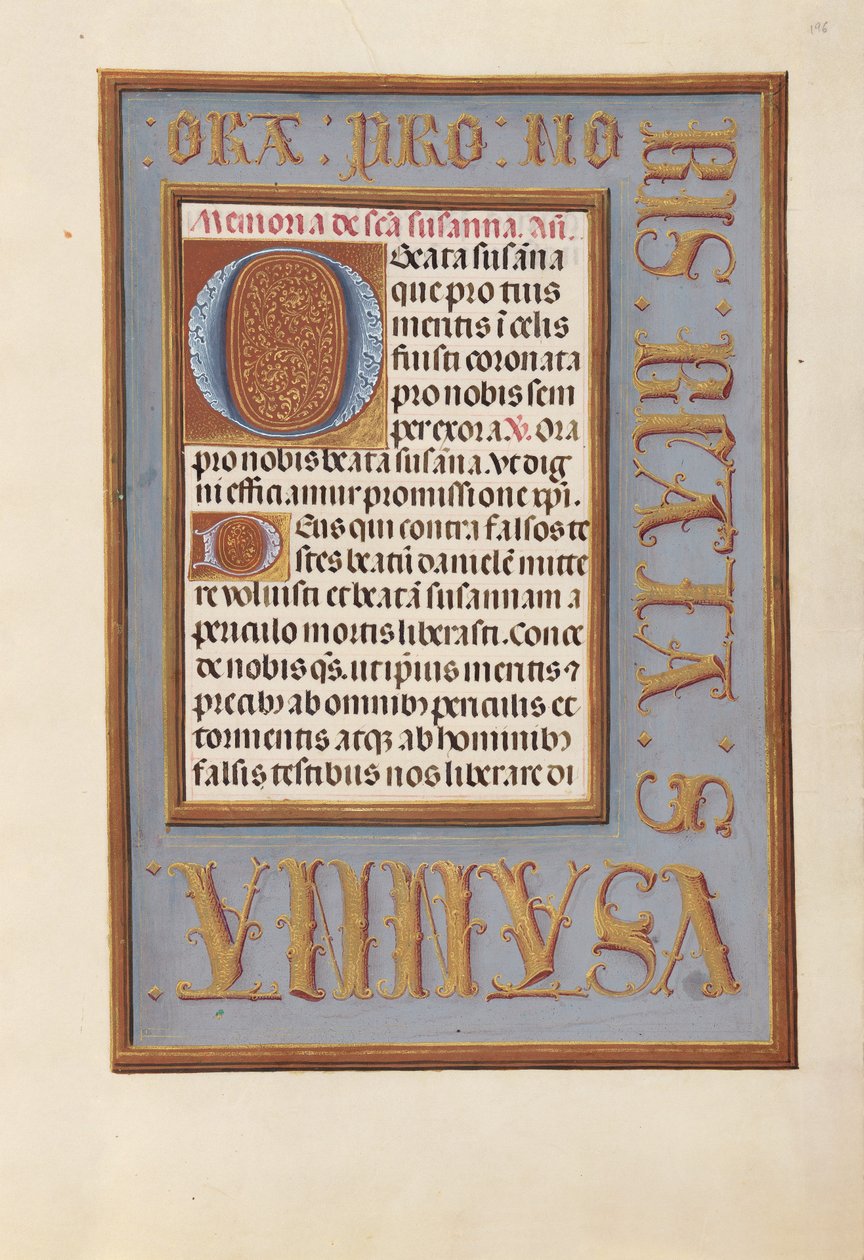 196
: ORA : PRO : NO
BIS : BEATA : S
VSANNA :
Memoria de scā susanna. Añ.
O Beata susāna
que pro tuis
meritis ī celis
fuisti coronata
pro nobis sem
per exora. V. Ora
pro nobis beata susāna. Vt dig
ni efficiamur promissione xpī.
DEus qui contra falsos te
stes beatū danielē mitte
re voluisti et beatā susannam a
periculo mortis liberasti. Conce
de nobis qs̄. ut ip̄ius meritis ⁊
precibꝫ ab omnibꝫ periculis et
tormentis atqꝫ ab hominibꝫ
falsis testibus nos liberare di